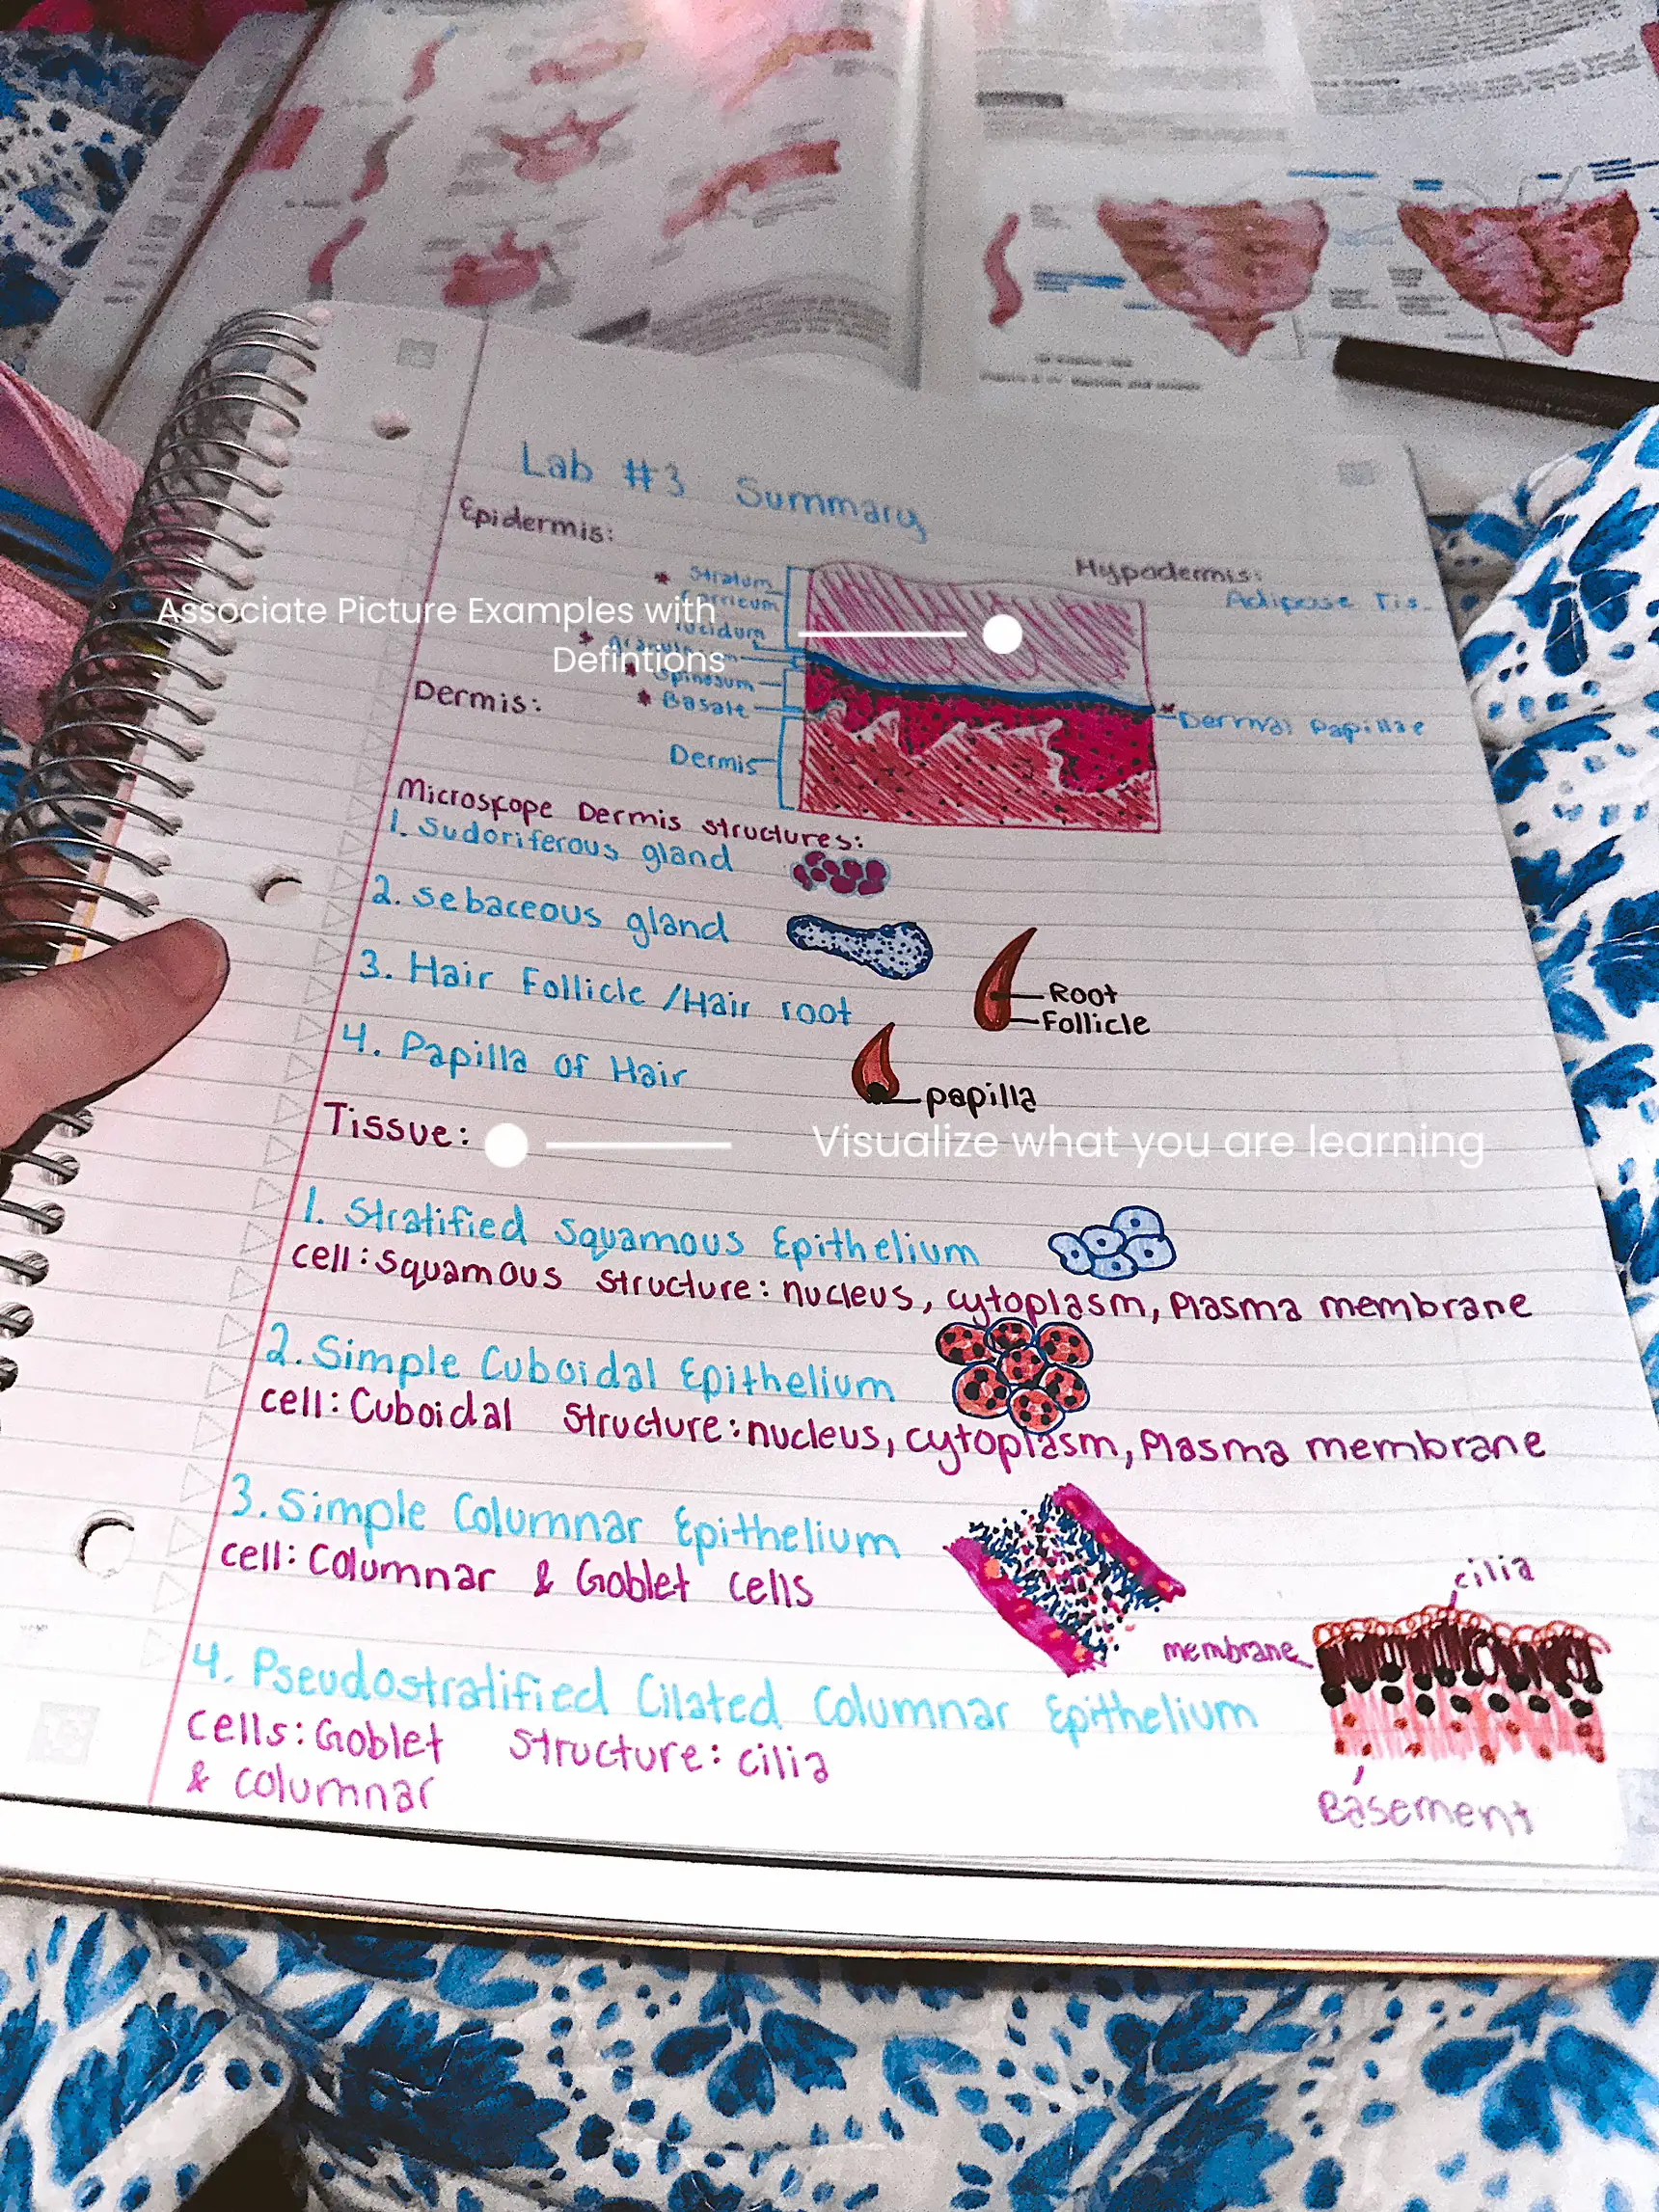 Lab #3 Summary
Epidermis:
Hypodermis:
Adipose Tis.
* Stratum
Corneum
Lucidum
Associate Picture Examples with
Defintions
* Spinosum
* Basale
Dermis:
* Dermal Papillae
Dermis
Microscope Dermis structures:
1. Sudoriferous gland
2. sebaceous gland
3. Hair Follicle / Hair root
Root
Follicle
4. Papilla of Hair
papilla
Tissue:
Visualize what you are learning
1. Stratified Squamous Epithelium
cell: squamous structure: nucleus, cytoplasm, Plasma membrane
2. Simple Cuboidal Epithelium
cell: Cuboidal structure: nucleus, cytoplasm, Plasma membrane
3. Simple Columnar Epithelium
cell: Columnar & Goblet cells
cilia
membrane
4. Pseudostratified Cilated Columnar Epithelium
Cells: Goblet structure: cilia
& columnar
Basement